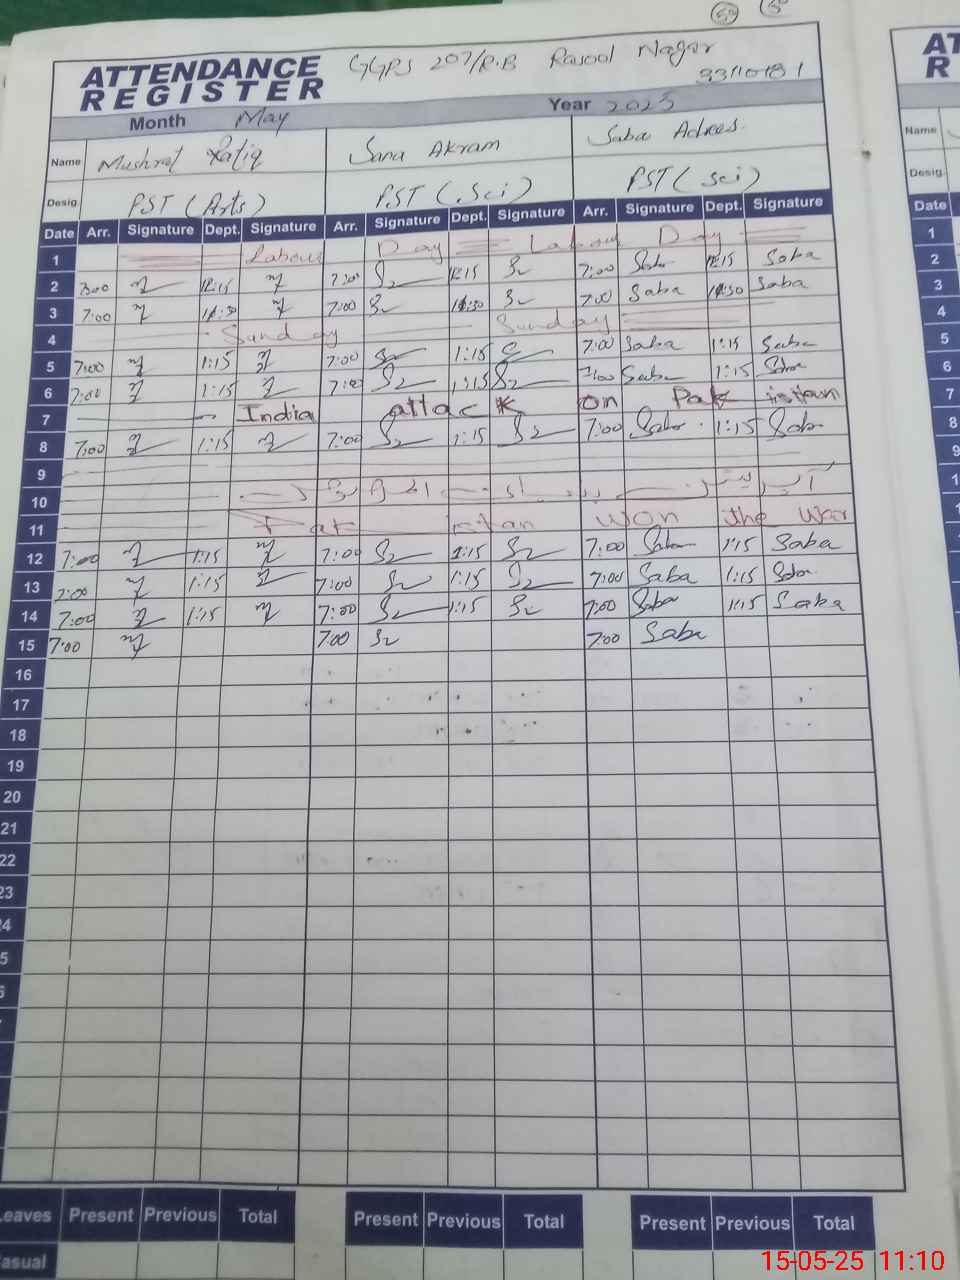 59
ATTENDANCE REGISTER GGPS 207/R.B Rasool Nagar
33110181
Month May Year 2025
Name Mushrat Sana Akram Saba
Desig. PST (Arts) PST (Sci) PST (Sci)
Date Arr. Signature Dept. Signature Arr. Signature Dept. Signature Arr. Signature Dept. Signature
1 Labour Day Labour Day
2 7:00 12:15 7:00 12:15 7:00 12:15 Saba
3 7:00 11:30 7:00 11:30 7:00 Saba 11:30 Saba
4 Sunday Sunday
5 7:00 1:15 7:00 1:15 7:00 Saba 1:15 Saba
6 7:00 1:15 7:00 1:15 7:00 Saba 1:15 Saba
7 India attack on Pakistan
8 7:00 1:15 7:00 1:15 7:00 Saba 1:15 Saba
9
10
11 Pakistan won the War
12 7:00 1:15 7:00 1:15 7:00 Saba 1:15 Saba
13 7:00 1:15 7:00 1:15 7:00 Saba 1:15 Saba
14 7:00 1:15 7:00 1:15 7:00 Saba 1:15 Saba
15 7:00 7:00 7:00 Saba
16
17
18
19
20
21
22
23
24
5
6
Leaves Present Previous Total Present Previous Total Present Previous Total
Casual
15-05-25 11:10
AT
R
Name
Desig.
Date
1
2
3
4
5
6
7
8
9